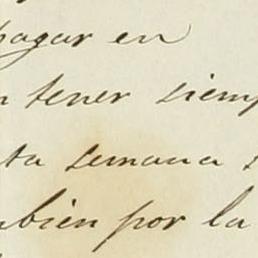 pagar en
n tener siemp
ta semana s
mbien por la